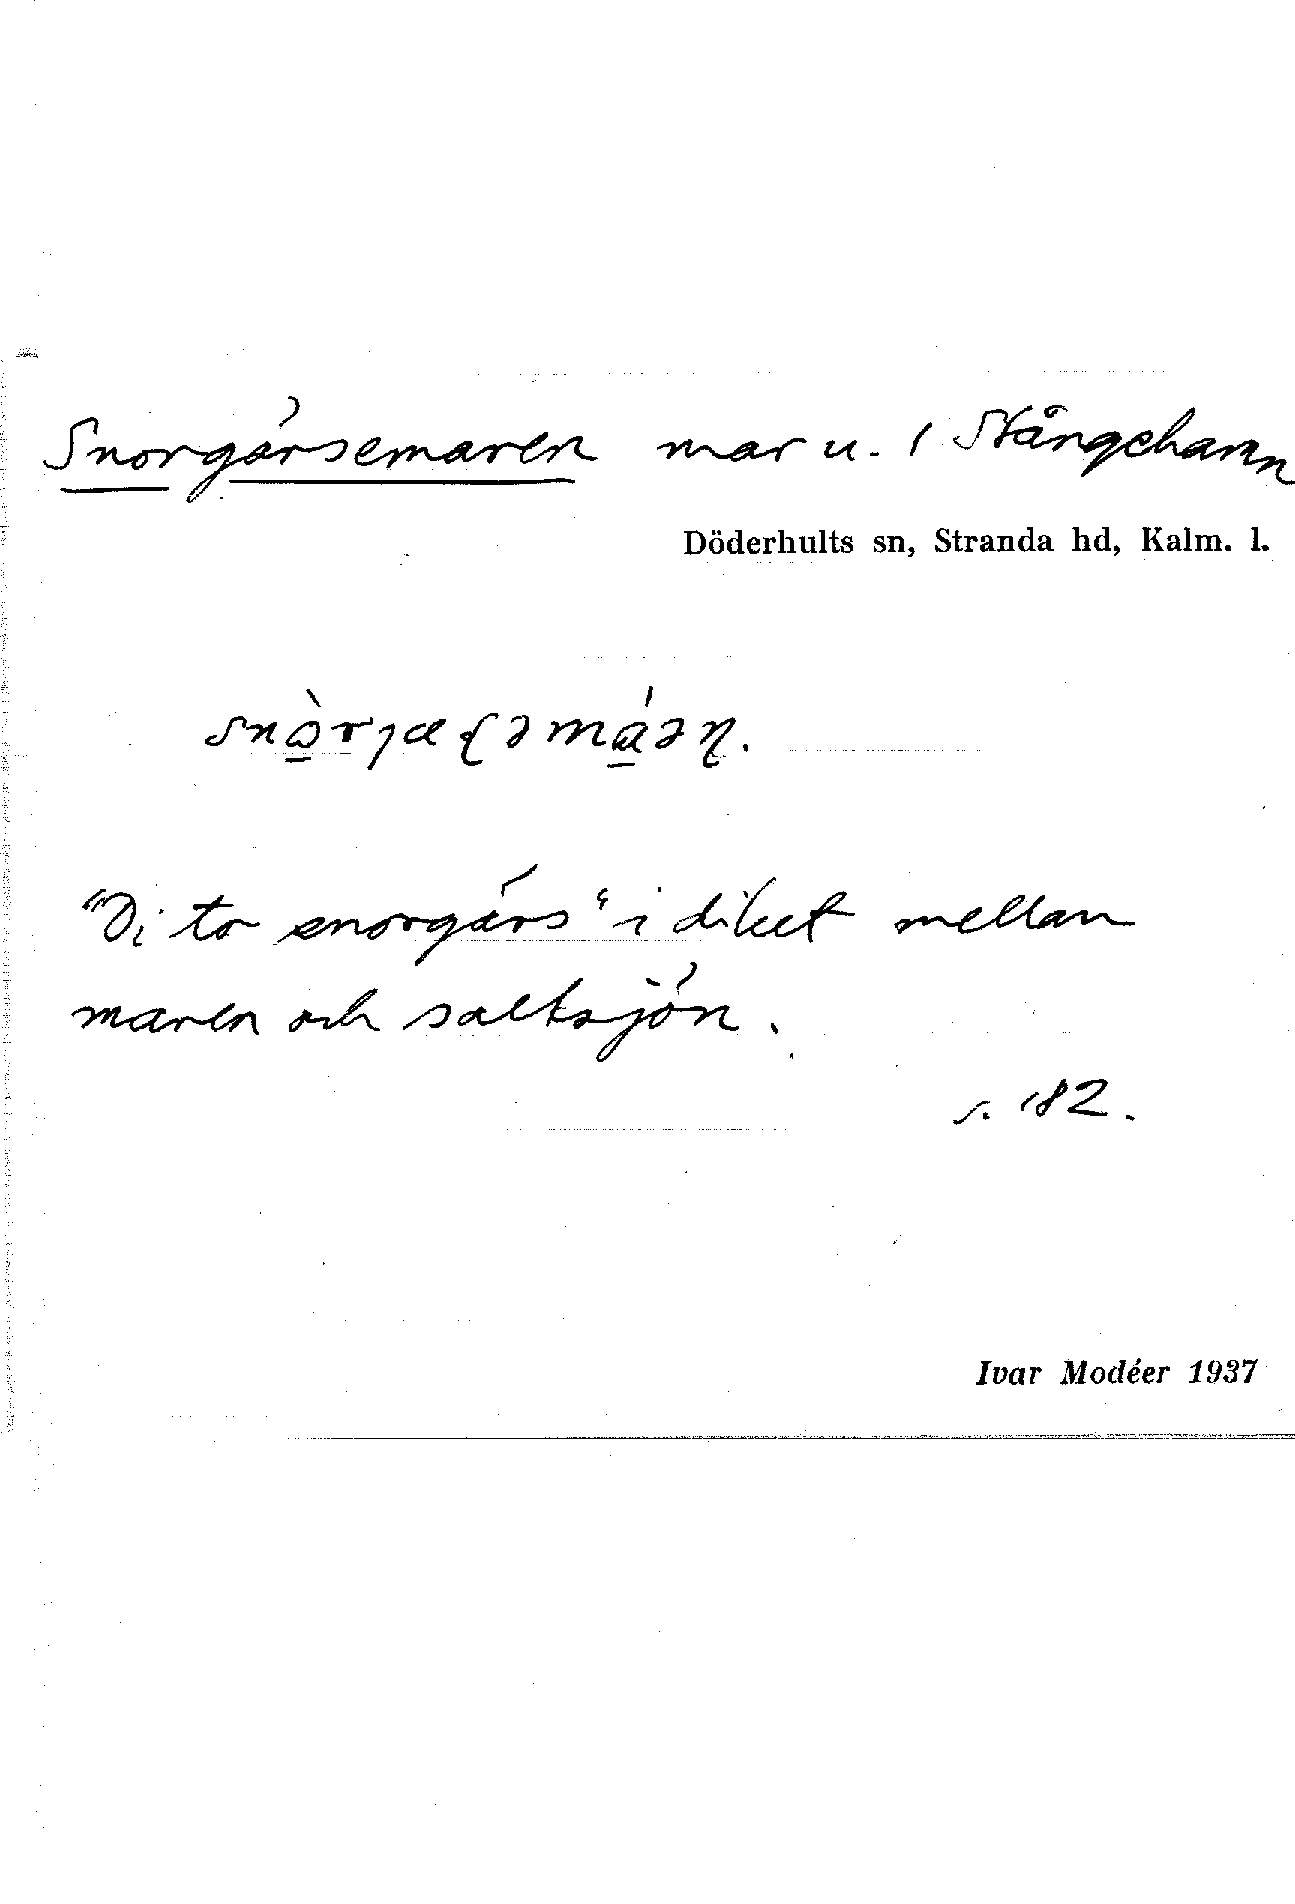 Snorgärsemaren mar u. 1 Stångehamn
Döderhults sn, Stranda hd, Kalm. l.
"Di tar snorgärs" i diket mellan
maren och saltsjön.
s. 182.
Ivar Modéer 1937